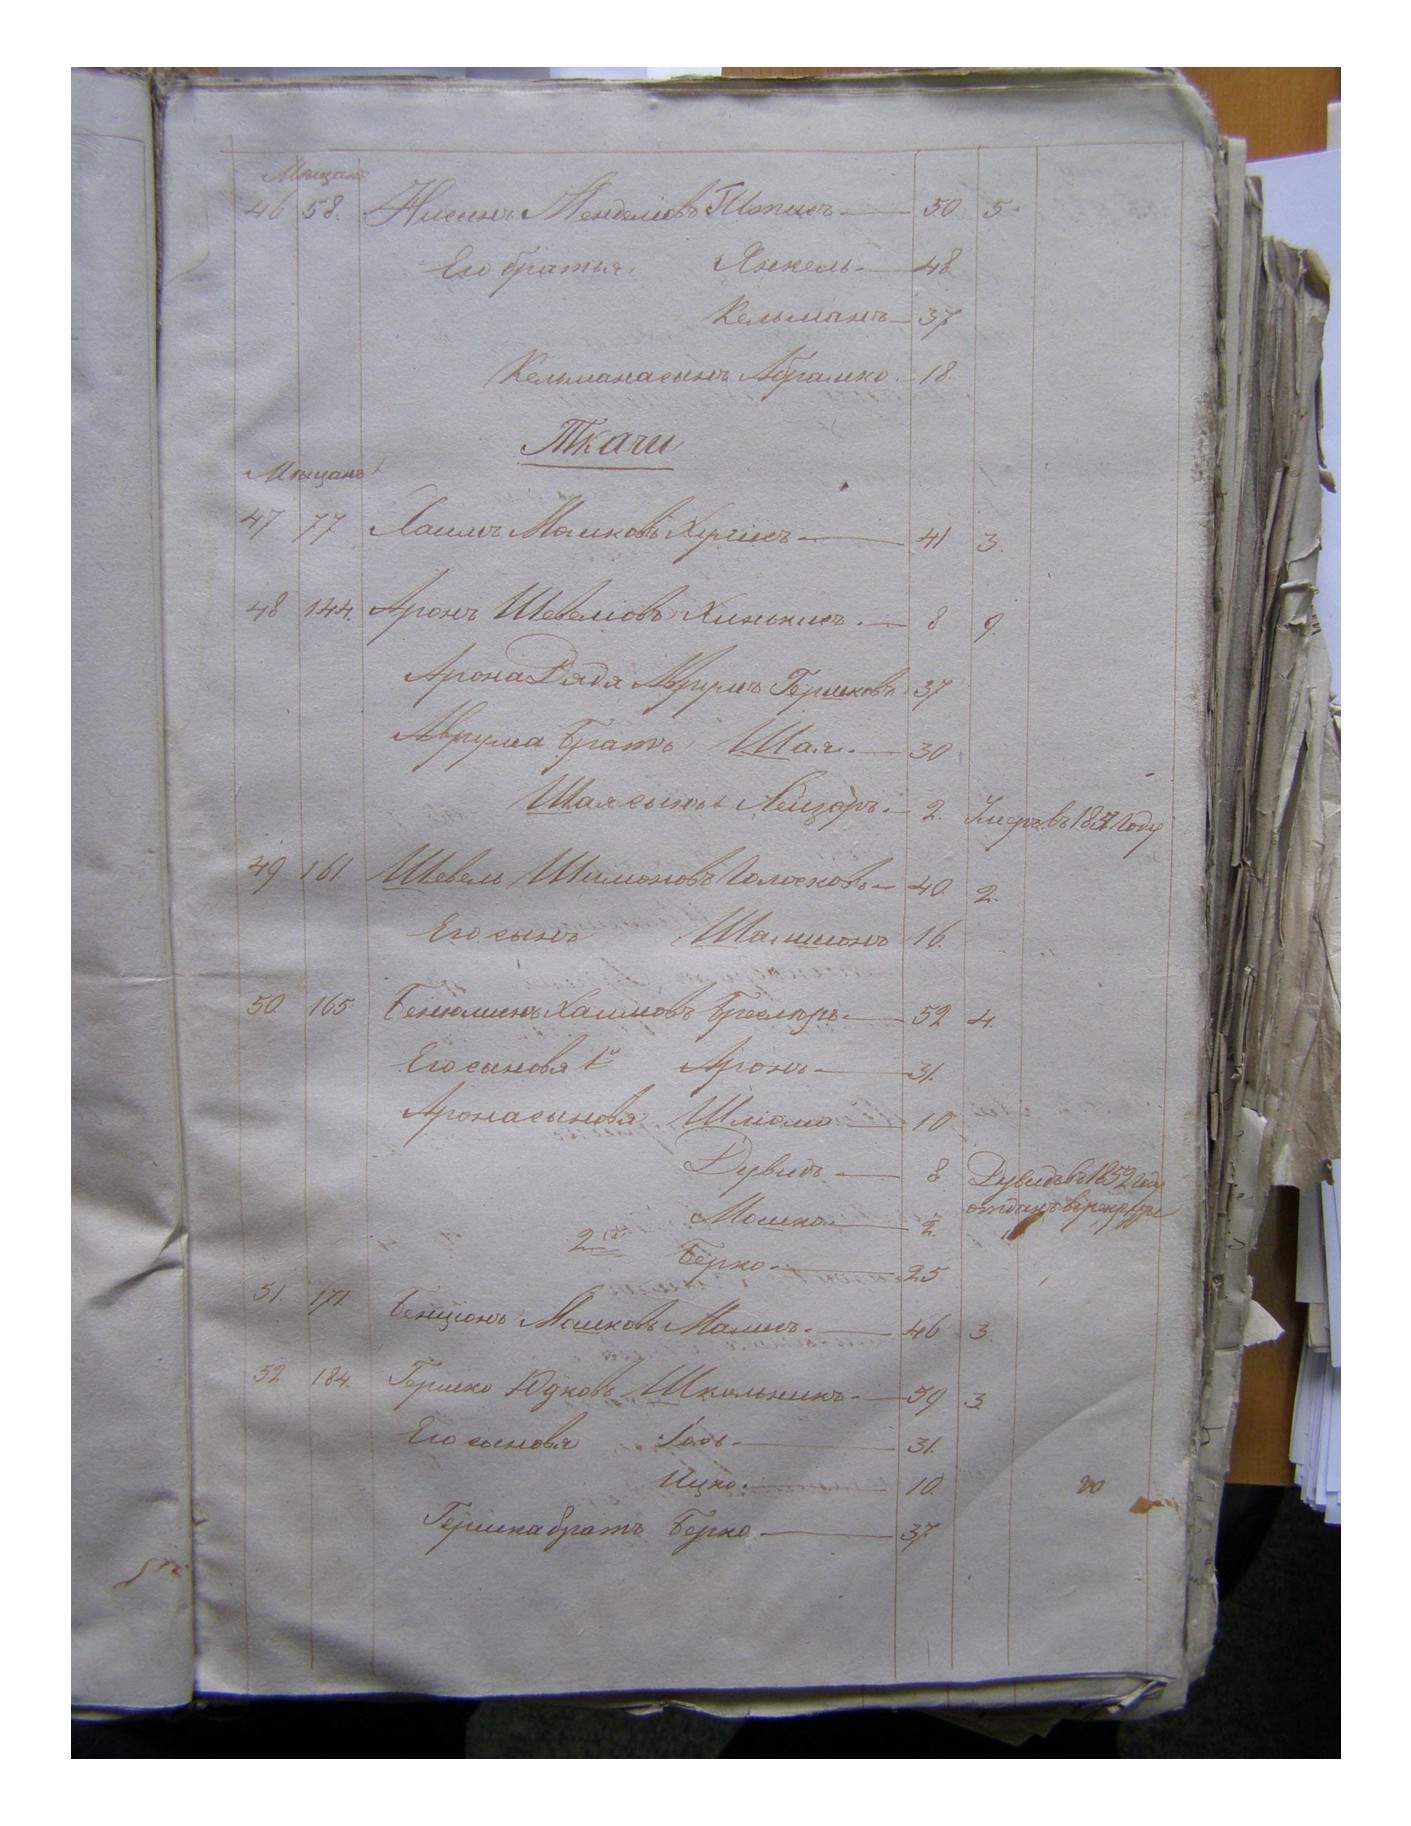 Мещан
46 58. Нисинъ Менделіовъ Штикъ 50 5
Его братья Янкель 48
Кельманъ 37
Кельмана сынъ Абрамко 18.
Ткачи
Мещанъ
47 77 Хаимъ Мошковъ 41 3.
48 144. Аронъ Шевеліовъ Хинькисъ 8 9.
Арона Дядя Аврумъ Гершковъ 37
Аврума братъ Шая 30
Шая сынъ Лейзоръ 2. Умеръ въ 1851 Году
49 161. Шевель Шимоновъ Голосковъ 40. 2.
Его сынъ Шамшонъ 16.
50. 165. Бенюминъ Хаимовъ 52 4.
Его сыновя 1й Аронъ 31.
Арона сыновя Шліома 10
Дувидъ 8 Дувидъ въ 1852 Году
Мошко 2. отданъ в рекруты
2й Берко 25
51. 171. Бенціонъ Мошковъ Малисъ 46 3
52 184. Гершко Юдковъ Школьникъ 59 3
Его сыновя 31.
Ицко 10.
Гершка братъ Берко 37